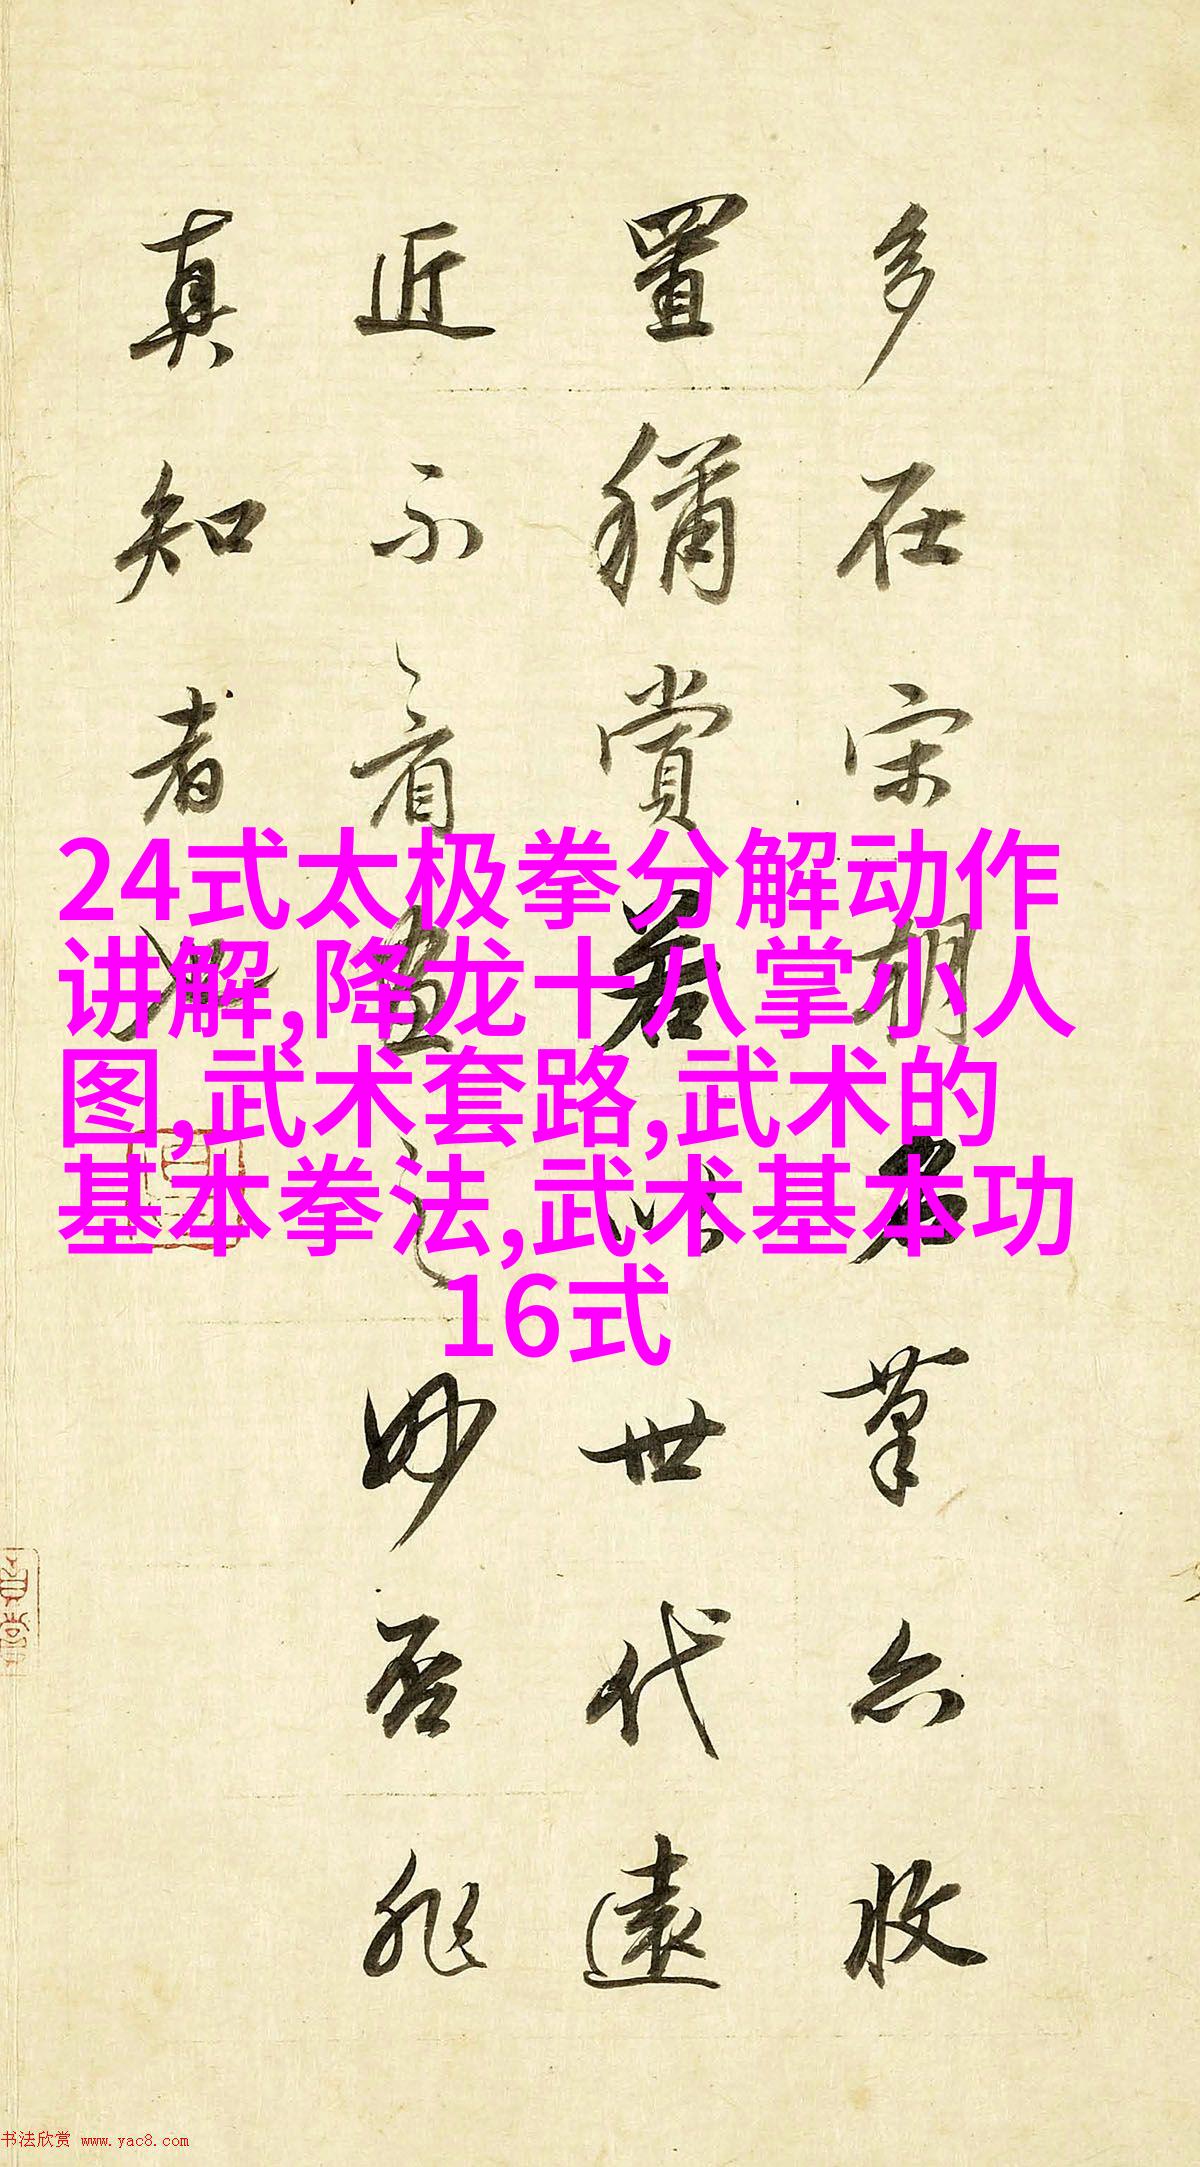 多在宋朝名筆亦收
置稱賞若以世代遠
近不看畫之妙否非
真知者也
24式太极拳分解动作
讲解,降龙十八掌小人
图,武术套路,武术的
基本拳法,武术基本功
16式
书法欣赏 www.yac8.com